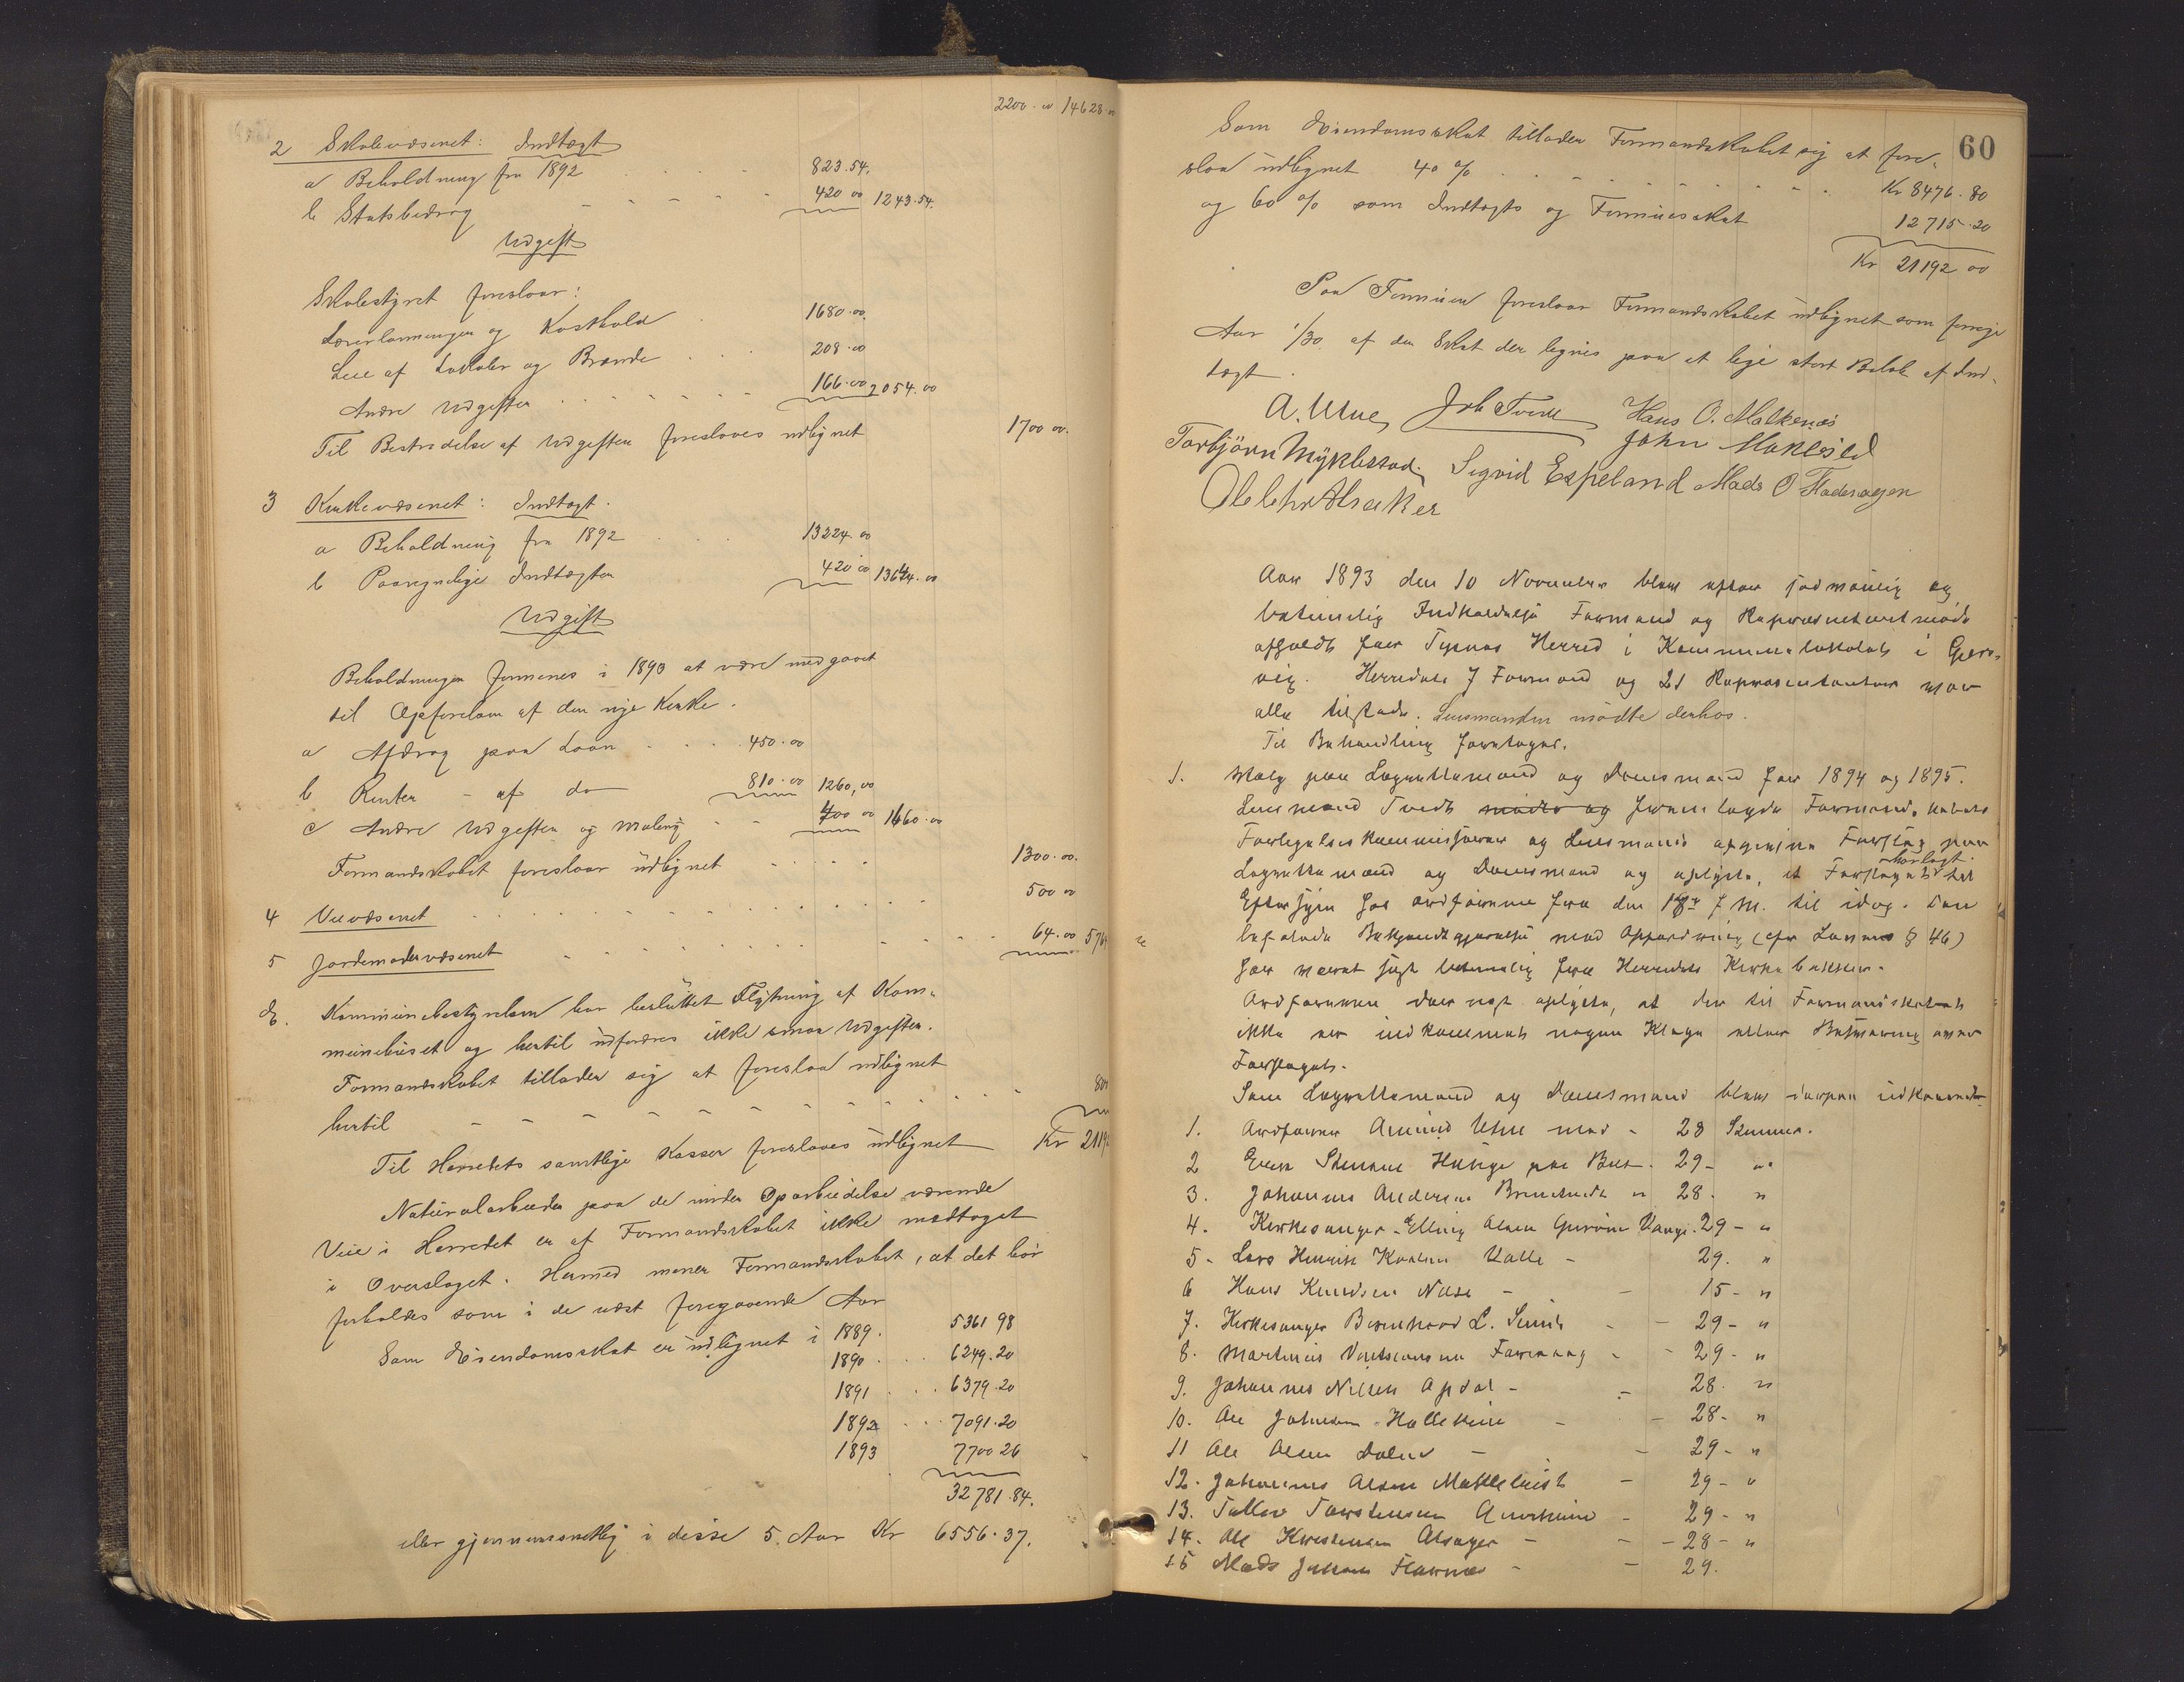 2200.00 14628.00
2 Skolevæsenet: Indtægt
a Beholdning fra 1892 823.54.
b Statsbidrag 420 00 1243.54.
Udgift
Skolestyret foreslaar:
Lærerlønninger og Kosthold 1680.00.
Leie af Lokaler og Brænde 208.00
Andre Udgifter 166.00 2054.00
Til Bestridelse af Udgifter foreslaaes udlignet 1700 00.
3 Kirkevæsenet: Indtægt.
a Beholdning fra 1892 13224.00
b Paaregnelige Indtægter 420 00 13644.00
Udgift
Beholdningen formenes i 1893 at være medgaaet
til Opførelsen af den nye Kirke.
a Afdrag paa Laan 450.00
b Renter - af do 810.00 1260,00
c Andre Udgifter og maling 400 00 1660.00
Formandskabet foreslaar udlignet 1300.00.
4 Veivæsenet 500 00
5 Jordemodervæsenet 64.00 5764
Kommunebestyrelsen har besluttet Flytning af Kom-
munehuset og hertil udfordres ikke smaa Udgifter.
Formandskabet tillader sig at foreslaa udlignet
hertil 800
Til Herredets samtlige Kasser foreslaaes udlignet Kr 21192
Naturalarbeider paa de under Oparbeidelse værende
Veie i Herredet er af Formandskabet ikke medtaget
i Overslaget. Hermed mener Formandskabet, at det bør
forholdes som i de næst foregaaende Aar
Som Eiendomsskat er udlignet i 1889. 5361 98
1890 6249.20
1891 6379.20
1892 7091.20
1893 7700 26
32781.84.
eller gjennemsnitlig i disse 5 Aar Kr 6556.37.
60
Som Eiendomsskat tillader Formandskabet sig at fore-
slaa udlignet 40 % Kr 8476.80
og 60 % som Indtægts og Formuesskat 12715.20
Kr 21192 00
Paa Formuen foreslaar Formandskabet udlignet som forrige
Aar 1/30 af den Skat der lignes paa et lige stort Beløb af Ind-
tægt.
A. Utne Joh Tvedt Hans O. Malkenes
Torbjørn Myklestad. Sigvid Espeland John Maklesed
Mads O
Aar 1893 den 10 November blev efter lovmæssig og
betimelig Indkaldelse Formand og Repræsentantmøde
afholdt for Tysnes Herred i Kommunelokalet i Gjers-
vig. Herredets 7 Formænd og 21 Repræsentanter var
alle tilstede. Lensmanden mødte derhos.
Til Behandling foretoges.
1. Valg paa Lagrettemænd og Domsmænd for 1894 og 1895.
Lensmand Tvedt mødte og fremlagde Formandskabets
Forligelseskommissærer og Lensmands afgivne Forslag paa
Lagrettemænd og Domsmænd og oplyste, at Forslaget har ligget til
Eftersyn hos Ordføreren fra den 18de f. M. til idag. Den
befalede Bekjendtgjørelse med Opfordring (cfr Lovens § 46)
har været sket betimelig fra Herredets Kirkebakker.
Ordføreren dernæst oplyste, at der til Formandskabet
ikke er indkommet nogen Klage eller Besværing over
Forslaget.
Som Lagrettemænd og Domsmænd blev derpaa
1. Ordfører Amund Utne med - 28 Stemmer.
2 29 - "
3. Johannes Andersen " 28. "
4. Kirkesanger Elling Olsen Vange. 29 - "
5 - Lars Henrik Valle - 29. "
6 Hans Knudsen - 15 - "
7. Kirkesanger Bernhard L. - 29 - "
8. Martinus - 29 - "
9. Johannes Nilsen - 28. "
10. Ole Johnsen - 28 - "
11 Ole Olsen - 29 - "
12. Johannes Olsen - 29 - "
13. Tollev Torstensen - 29 - "
14. Ole - 28 - "
15 Mads - 29.